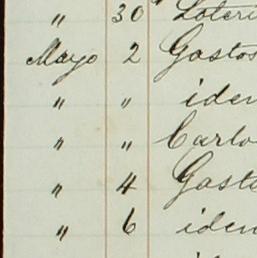 " 30 Loteri
Mayo 2 Gastos
" " iden
" " Carlo
" 4 Gasto
" 6 iden